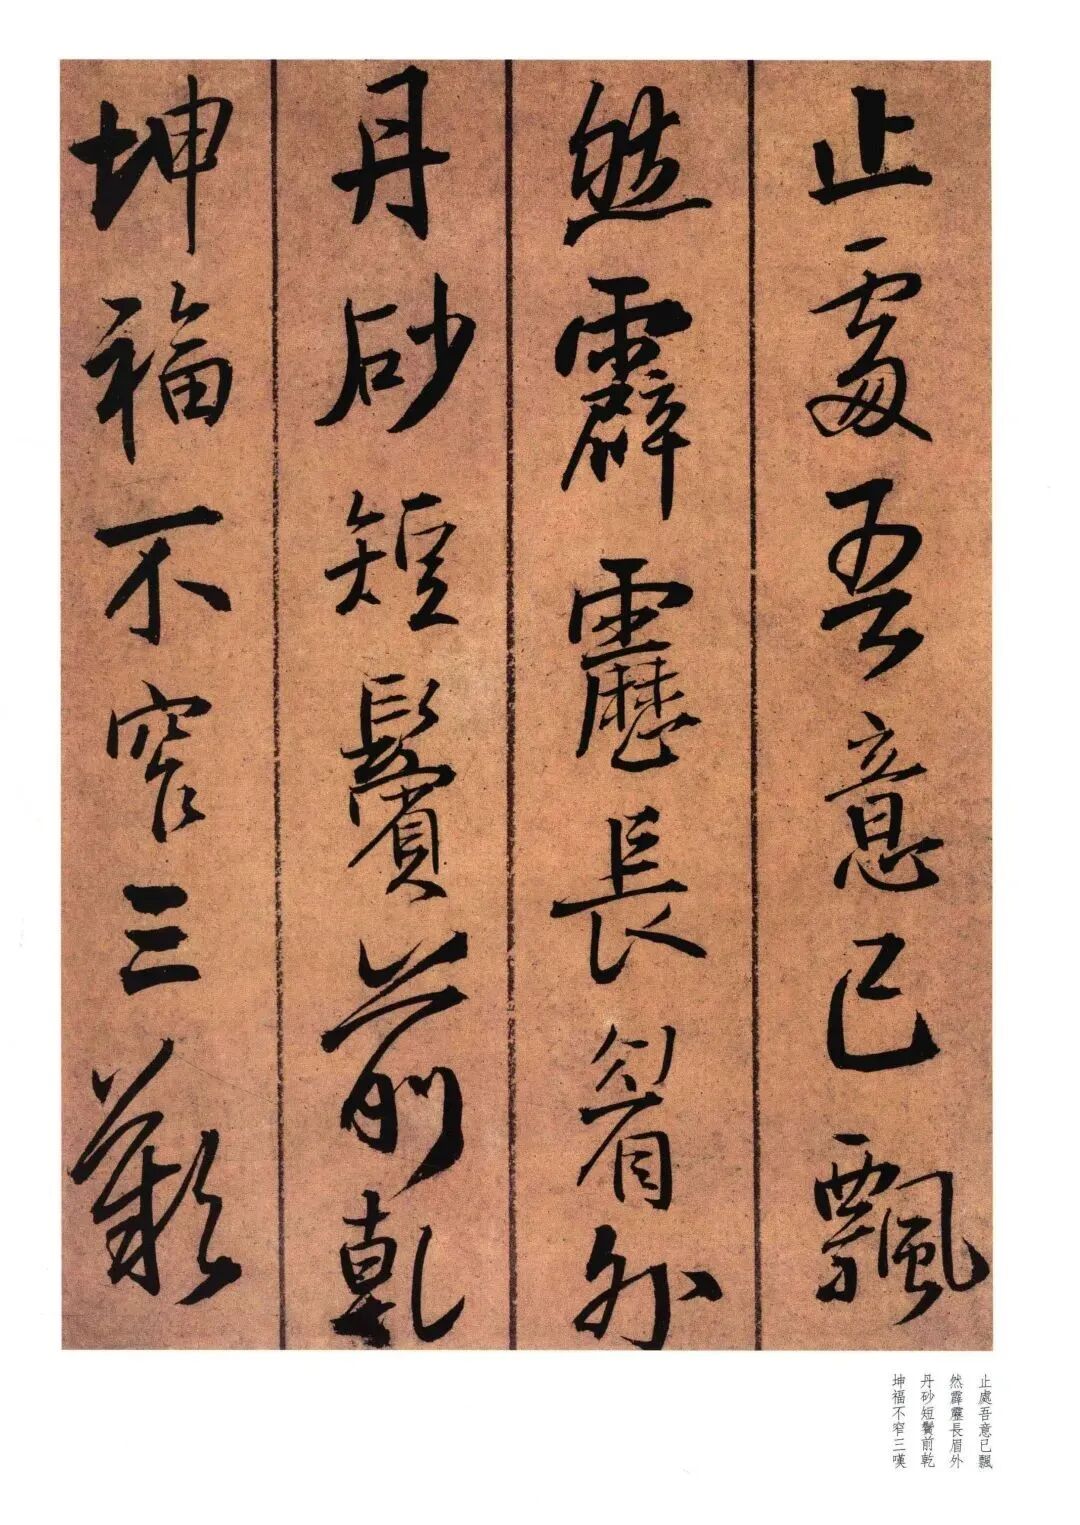 止處吾意已飄
然霹靂長眉外
丹砂短鬢前乾
坤福不窄三嘆
止處吾意已飄
然霹靂長眉外
丹砂短鬢前乾
坤福不窄三嘆